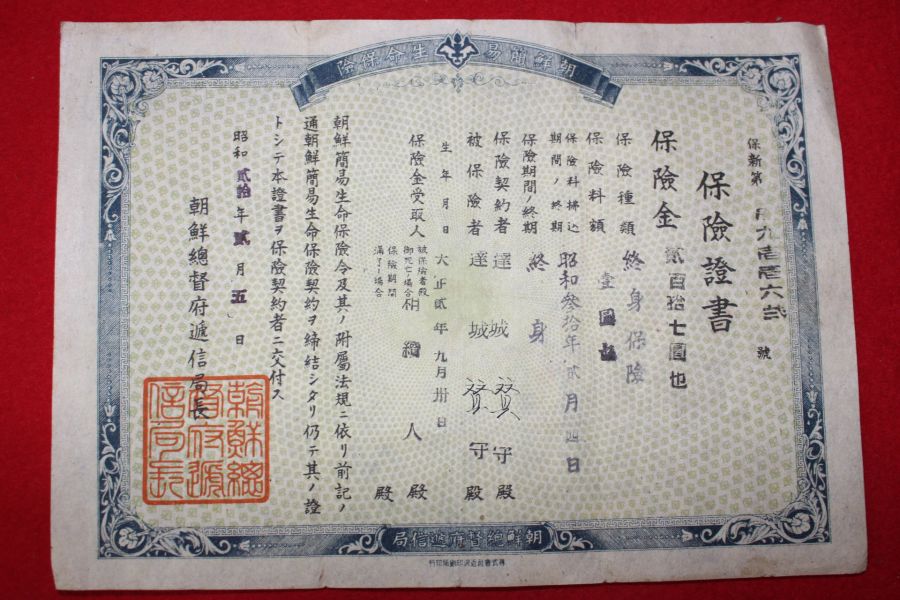 朝鮮簡易生命保險
保新第 九壱壱六弐 號
保險證書
保險金 貳百拾七圓也
保險種類 終身保險
保險料額 壹圓
保險料拂込期間ノ終期 昭和參拾年貳月四日
保險期間ノ終期 終身
保險契約者 達城賛守殿
被保險者 達城賛守殿
生年月日 大正貳年九月卅日
保險金受取人
被保險者死亡ノ場合 相續人殿
保險期間滿了ノ場合 殿
朝鮮簡易生命保險令及其ノ附屬法規ニ依リ前記ノ
通朝鮮簡易生命保險契約ヲ締結シタリ仍テ其ノ證
トシテ本證書ヲ保險契約者ニ交付ス
昭和貳拾年貳月五日
朝鮮總督府遞信局長
朝鮮總督府遞信局長
朝鮮總督府遞信局